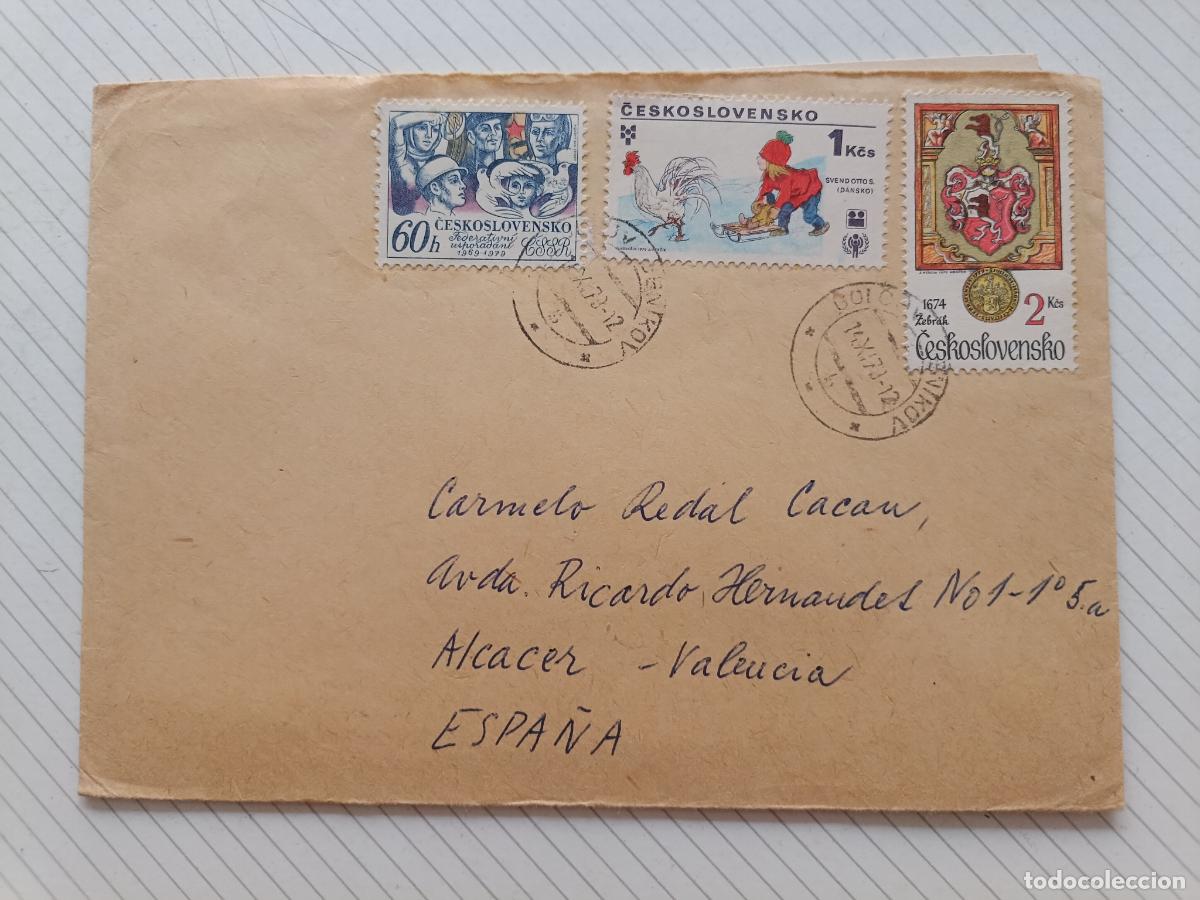 ČESKOSLOVENSKO
60h
Federativní
uspořádání
1969-1979
ČSSR
ČESKOSLOVENSKO
1 Kčs
SVEND OTTO S.
(DÁNSKO)
1674
Žebrák
2 Kčs
Československo
Carmelo Redal Cacau,
Avda. Ricardo Hernandes No 1-1º 5.a
Alcacer - Valencia
ESPAÑA
todocoleccion